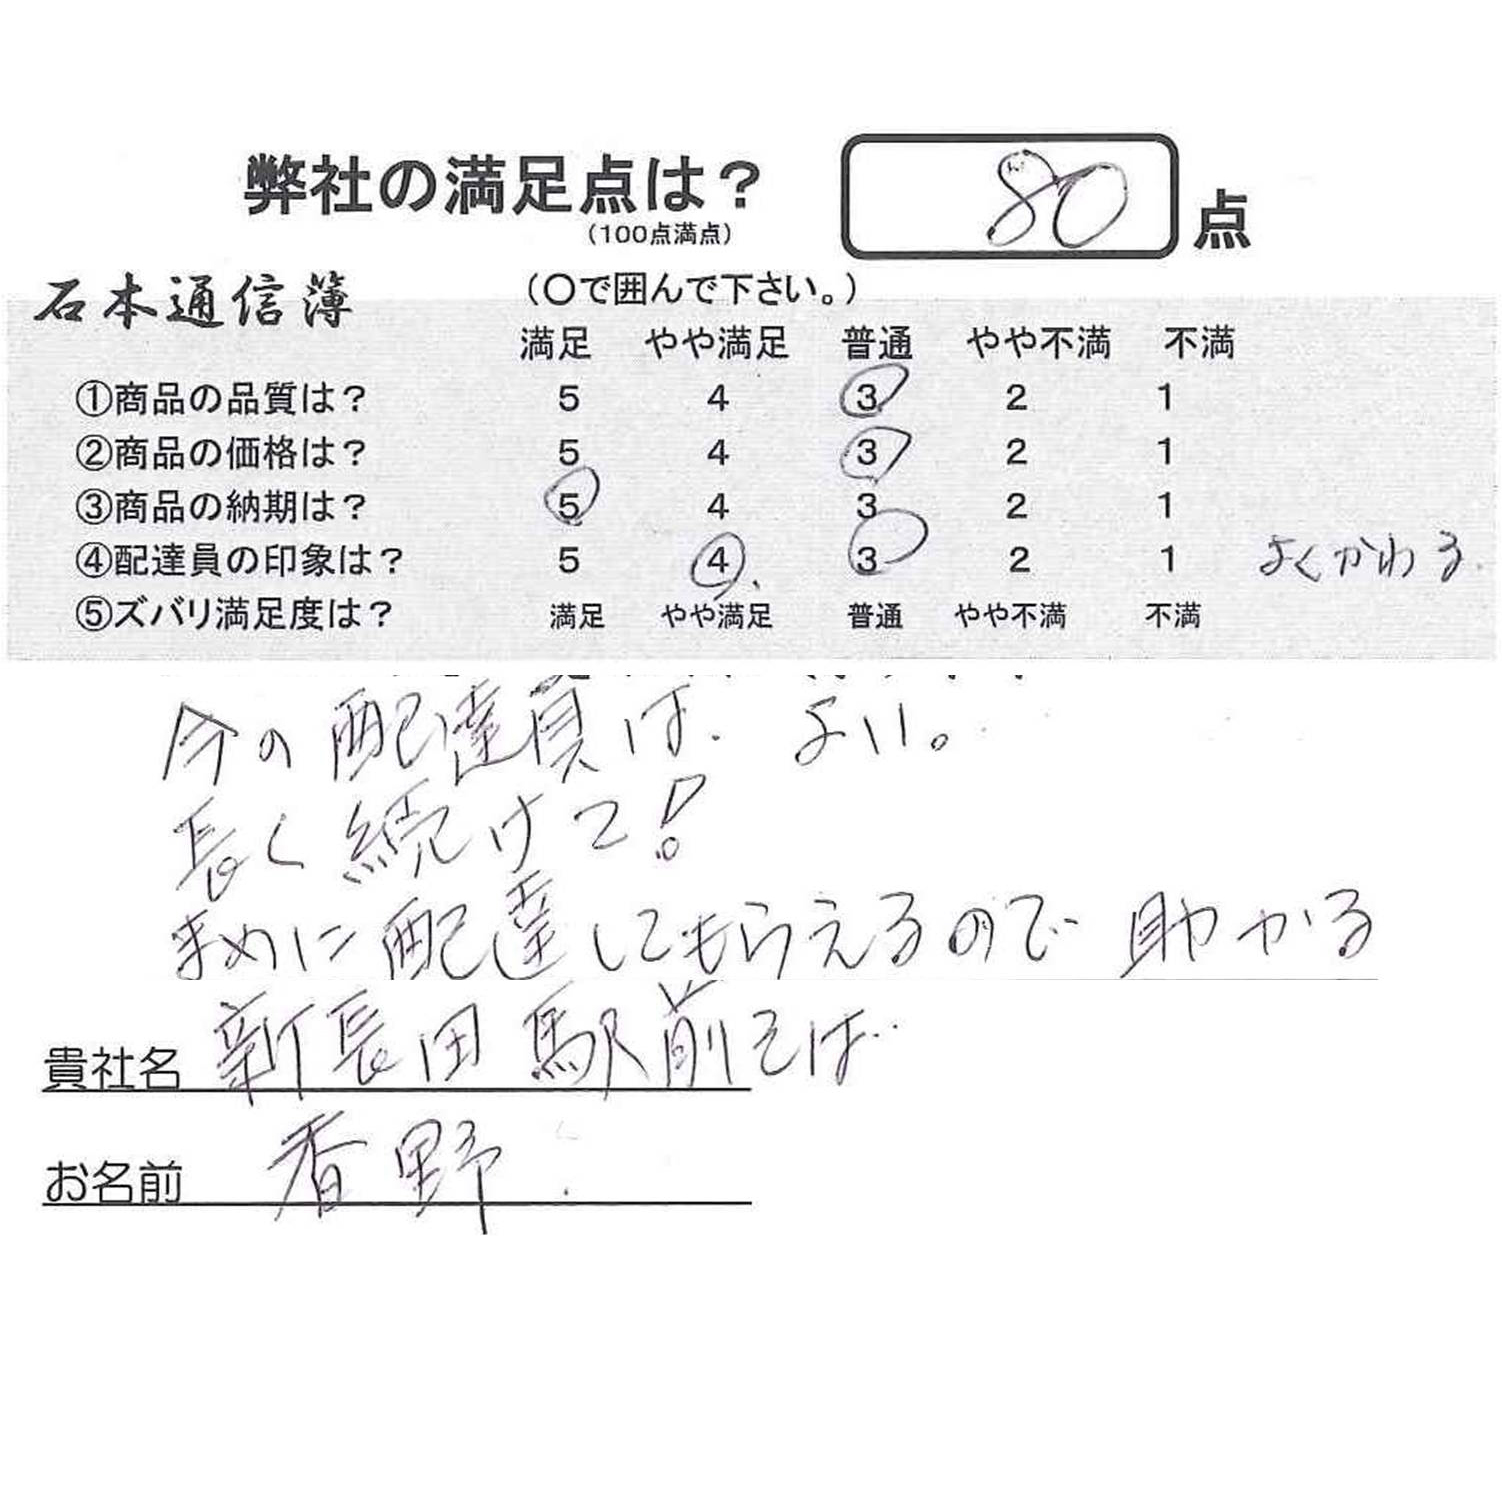 弊社の満足点は？ 80 点
（100点満点）
石本通信簿 （〇で囲んで下さい。）
満足 やや満足 普通 やや不満 不満
①商品の品質は？ 5 4 3 2 1
②商品の価格は？ 5 4 3 2 1
③商品の納期は？ 5 4 3 2 1
④配達員の印象は？ 5 4 3 2 1 よくかわる.
⑤ズバリ満足度は？ 満足 やや満足 普通 やや不満 不満
今の配達員は. よい。
長く続けて！
まめに配達してもらえるので助かる
貴社名 新長田駅前そば
お名前 香野